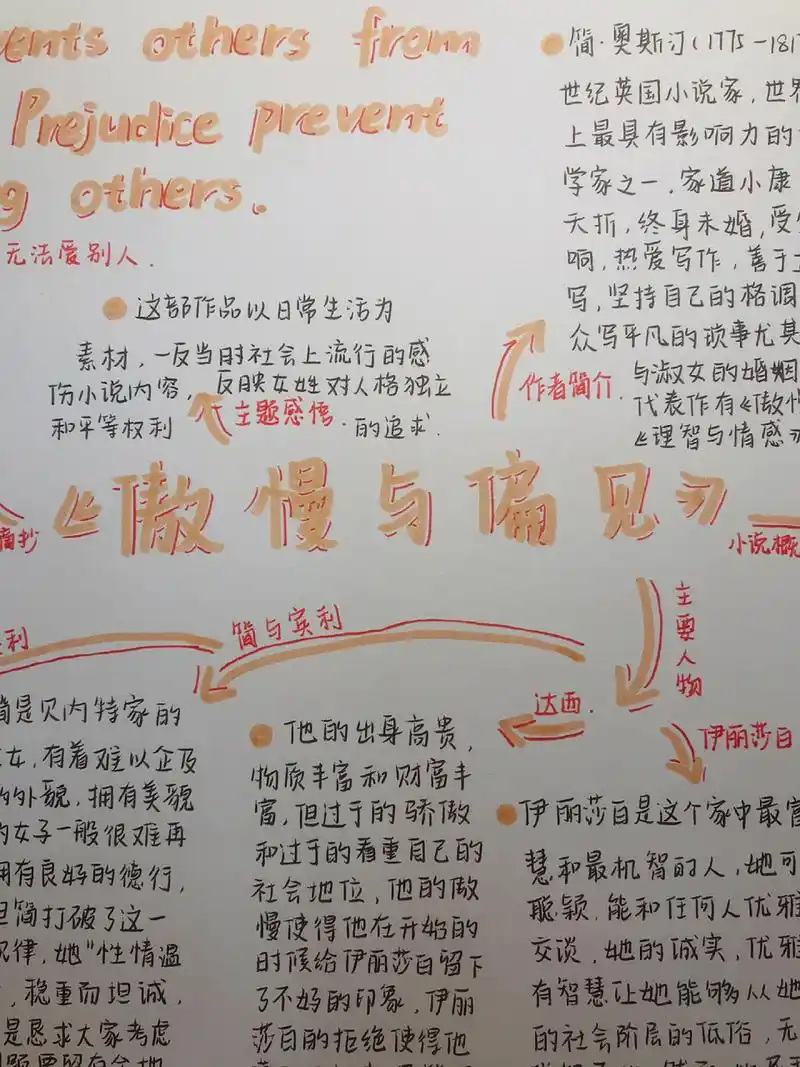 others from
Prejudice prevent
others.
无法爱别人.
这部作品以日常生活为
素材,一反当时社会上流行的感
伤小说内容, 反映女姓对人格独立
和平等权利 的追求.
主题感悟
简·奥斯汀(1775-181
世纪英国小说家,世界
上最具有影响力的
学家之一.家道小康
夭折,终身未婚,受
响,热爱写作,善于
写,坚持自己的格调
众写平凡的琐事尤其
与淑女的婚姻
代表作有《傲慢
《理智与情感》
作者简介.
摘抄
《傲慢与偏见》
小说概
主要人物
利
简与宾利
达西.
伊丽莎白
简是贝内特家的
女,有着难以企及
的外貌,拥有美貌
的女子一般很难再
拥有良好的德行,
但简打破了这一
规律,她"性情温
,稳重而坦诚,
是恳求大家考虑
他的出身高贵,
物质丰富和财富丰
富,但过于的骄傲
和过于的看重自己的
社会地位,他的傲
慢使得他在开始的
时候给伊丽莎白留下
了不好的印象,伊丽
莎白的拒绝使得他
伊丽莎白是这个家中最富
慧和最机智的人,她可
聪颖.能和任何人优雅
交谈,她的诚实,优雅
有智慧让她能够从她
的社会阶层的低俗,无